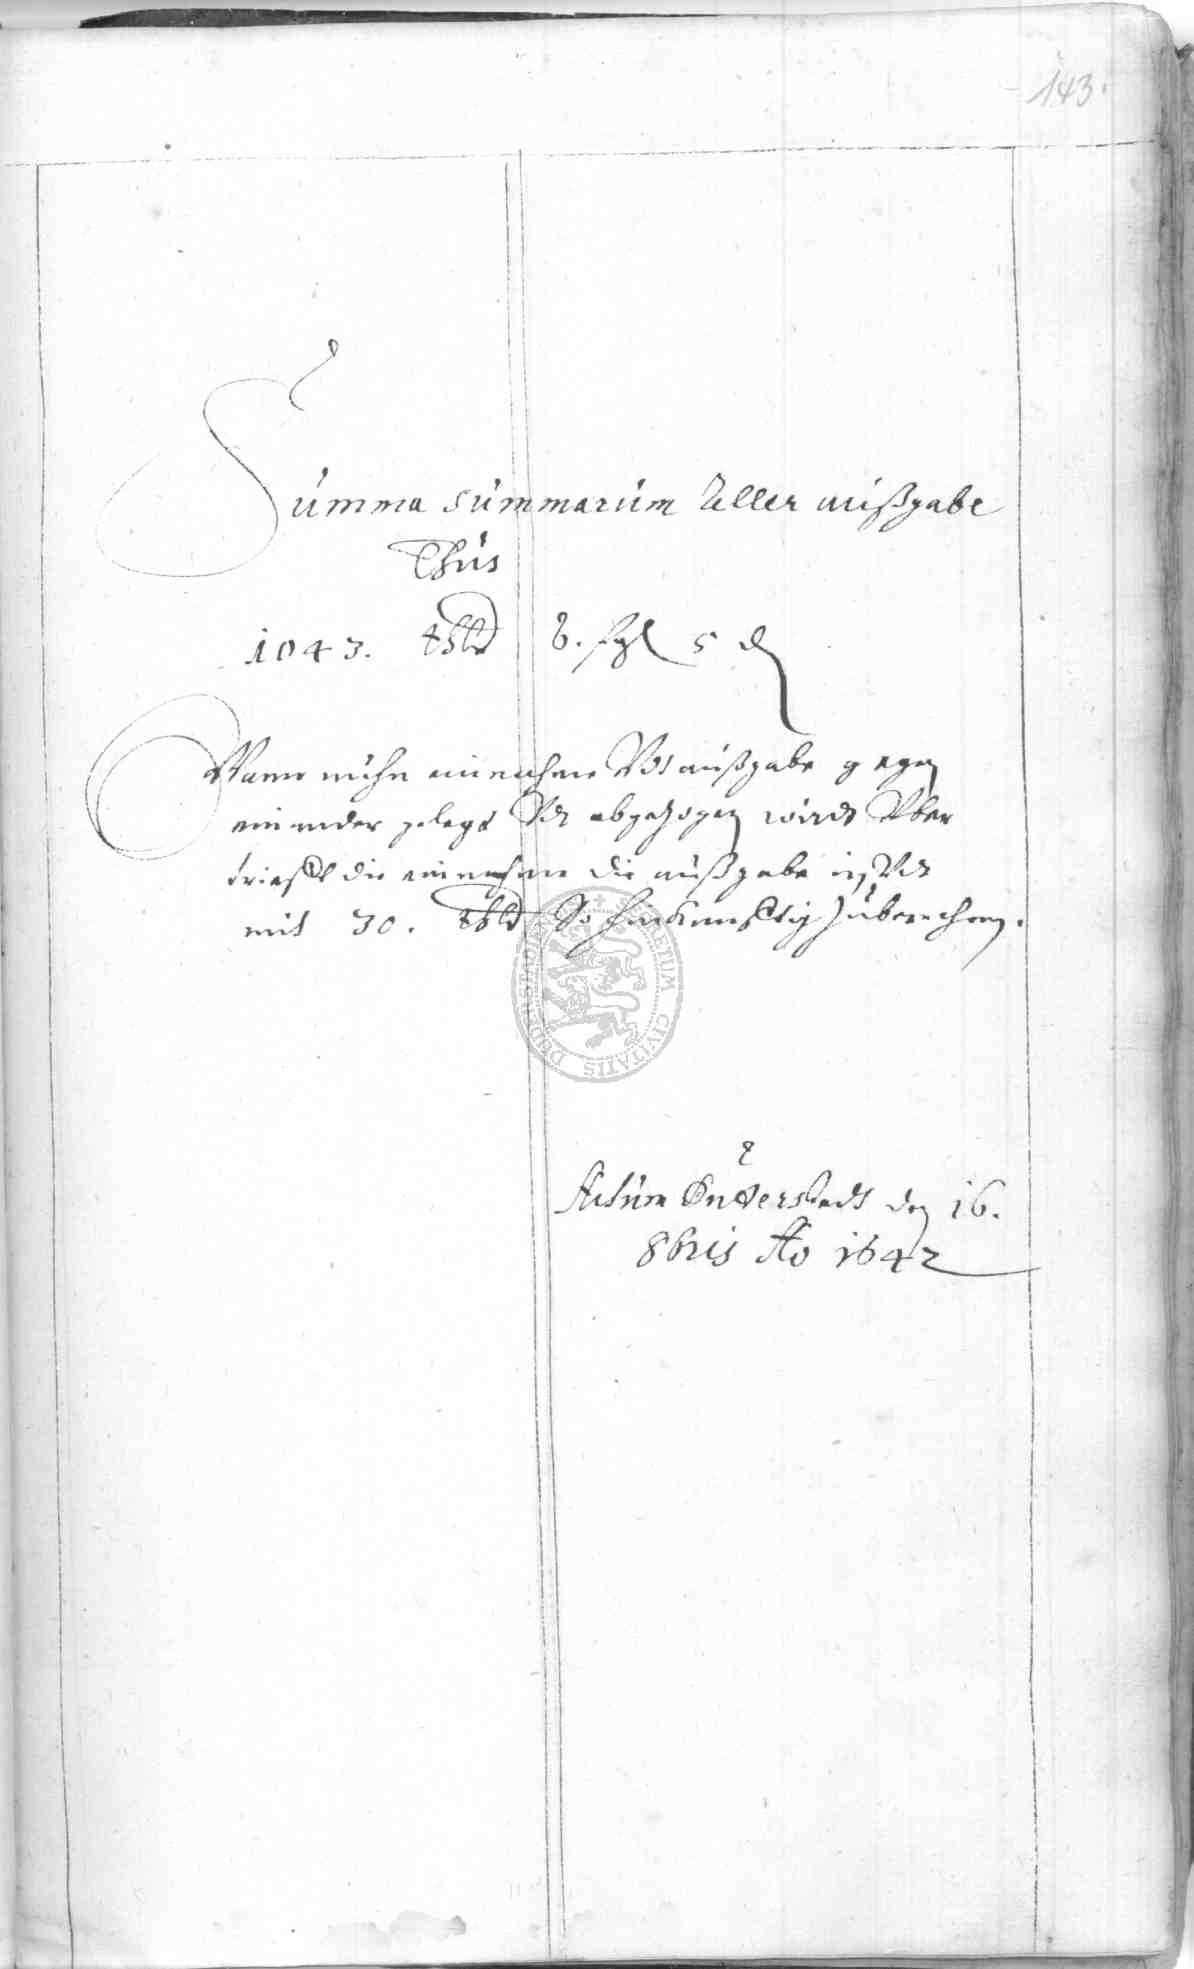 143.
Summa Summarum Aller außgabe
Thus
1043. thlr 8. ßgl 5 d
Wann nuhn einnahme Vndt außgabe gegen
einander gelegt Vndt abgezogen wirdt Vber
trifft die einnahme die außgabe
mit 30. thlr So hinkunfftig Zuberechnen.
Actum Duderstadt den 16.
8bris Ao 1642
SECRETUM CIVITATIS